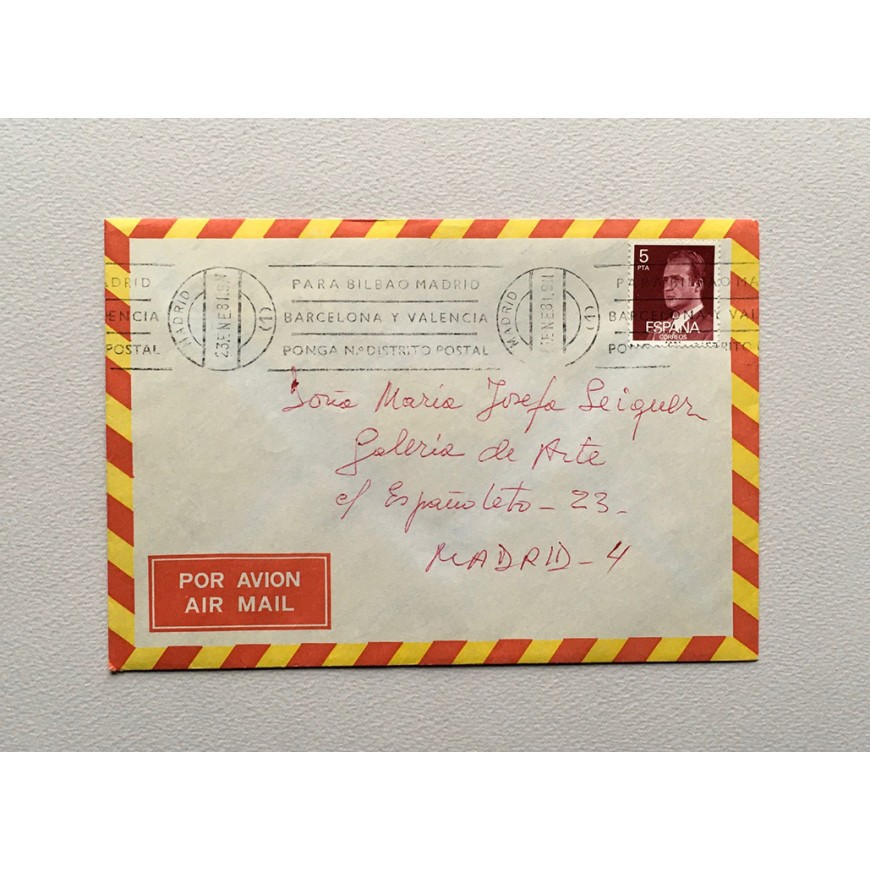 MADRID
ENCIA
POSTAL
MADRID
23.ENE81.9.N
(1)
PARA BILBAO MADRID
BARCELONA Y VALENCIA
PONGA N.º DISTRITO POSTAL
MADRID
ENE81.9.N
(1)
5
PTA
ESPAÑA
CORREOS
Doña María Josefa Seiquer
Galería de Arte
c/ Españoleto - 23 -
MADRID - 4
POR AVION
AIR MAIL